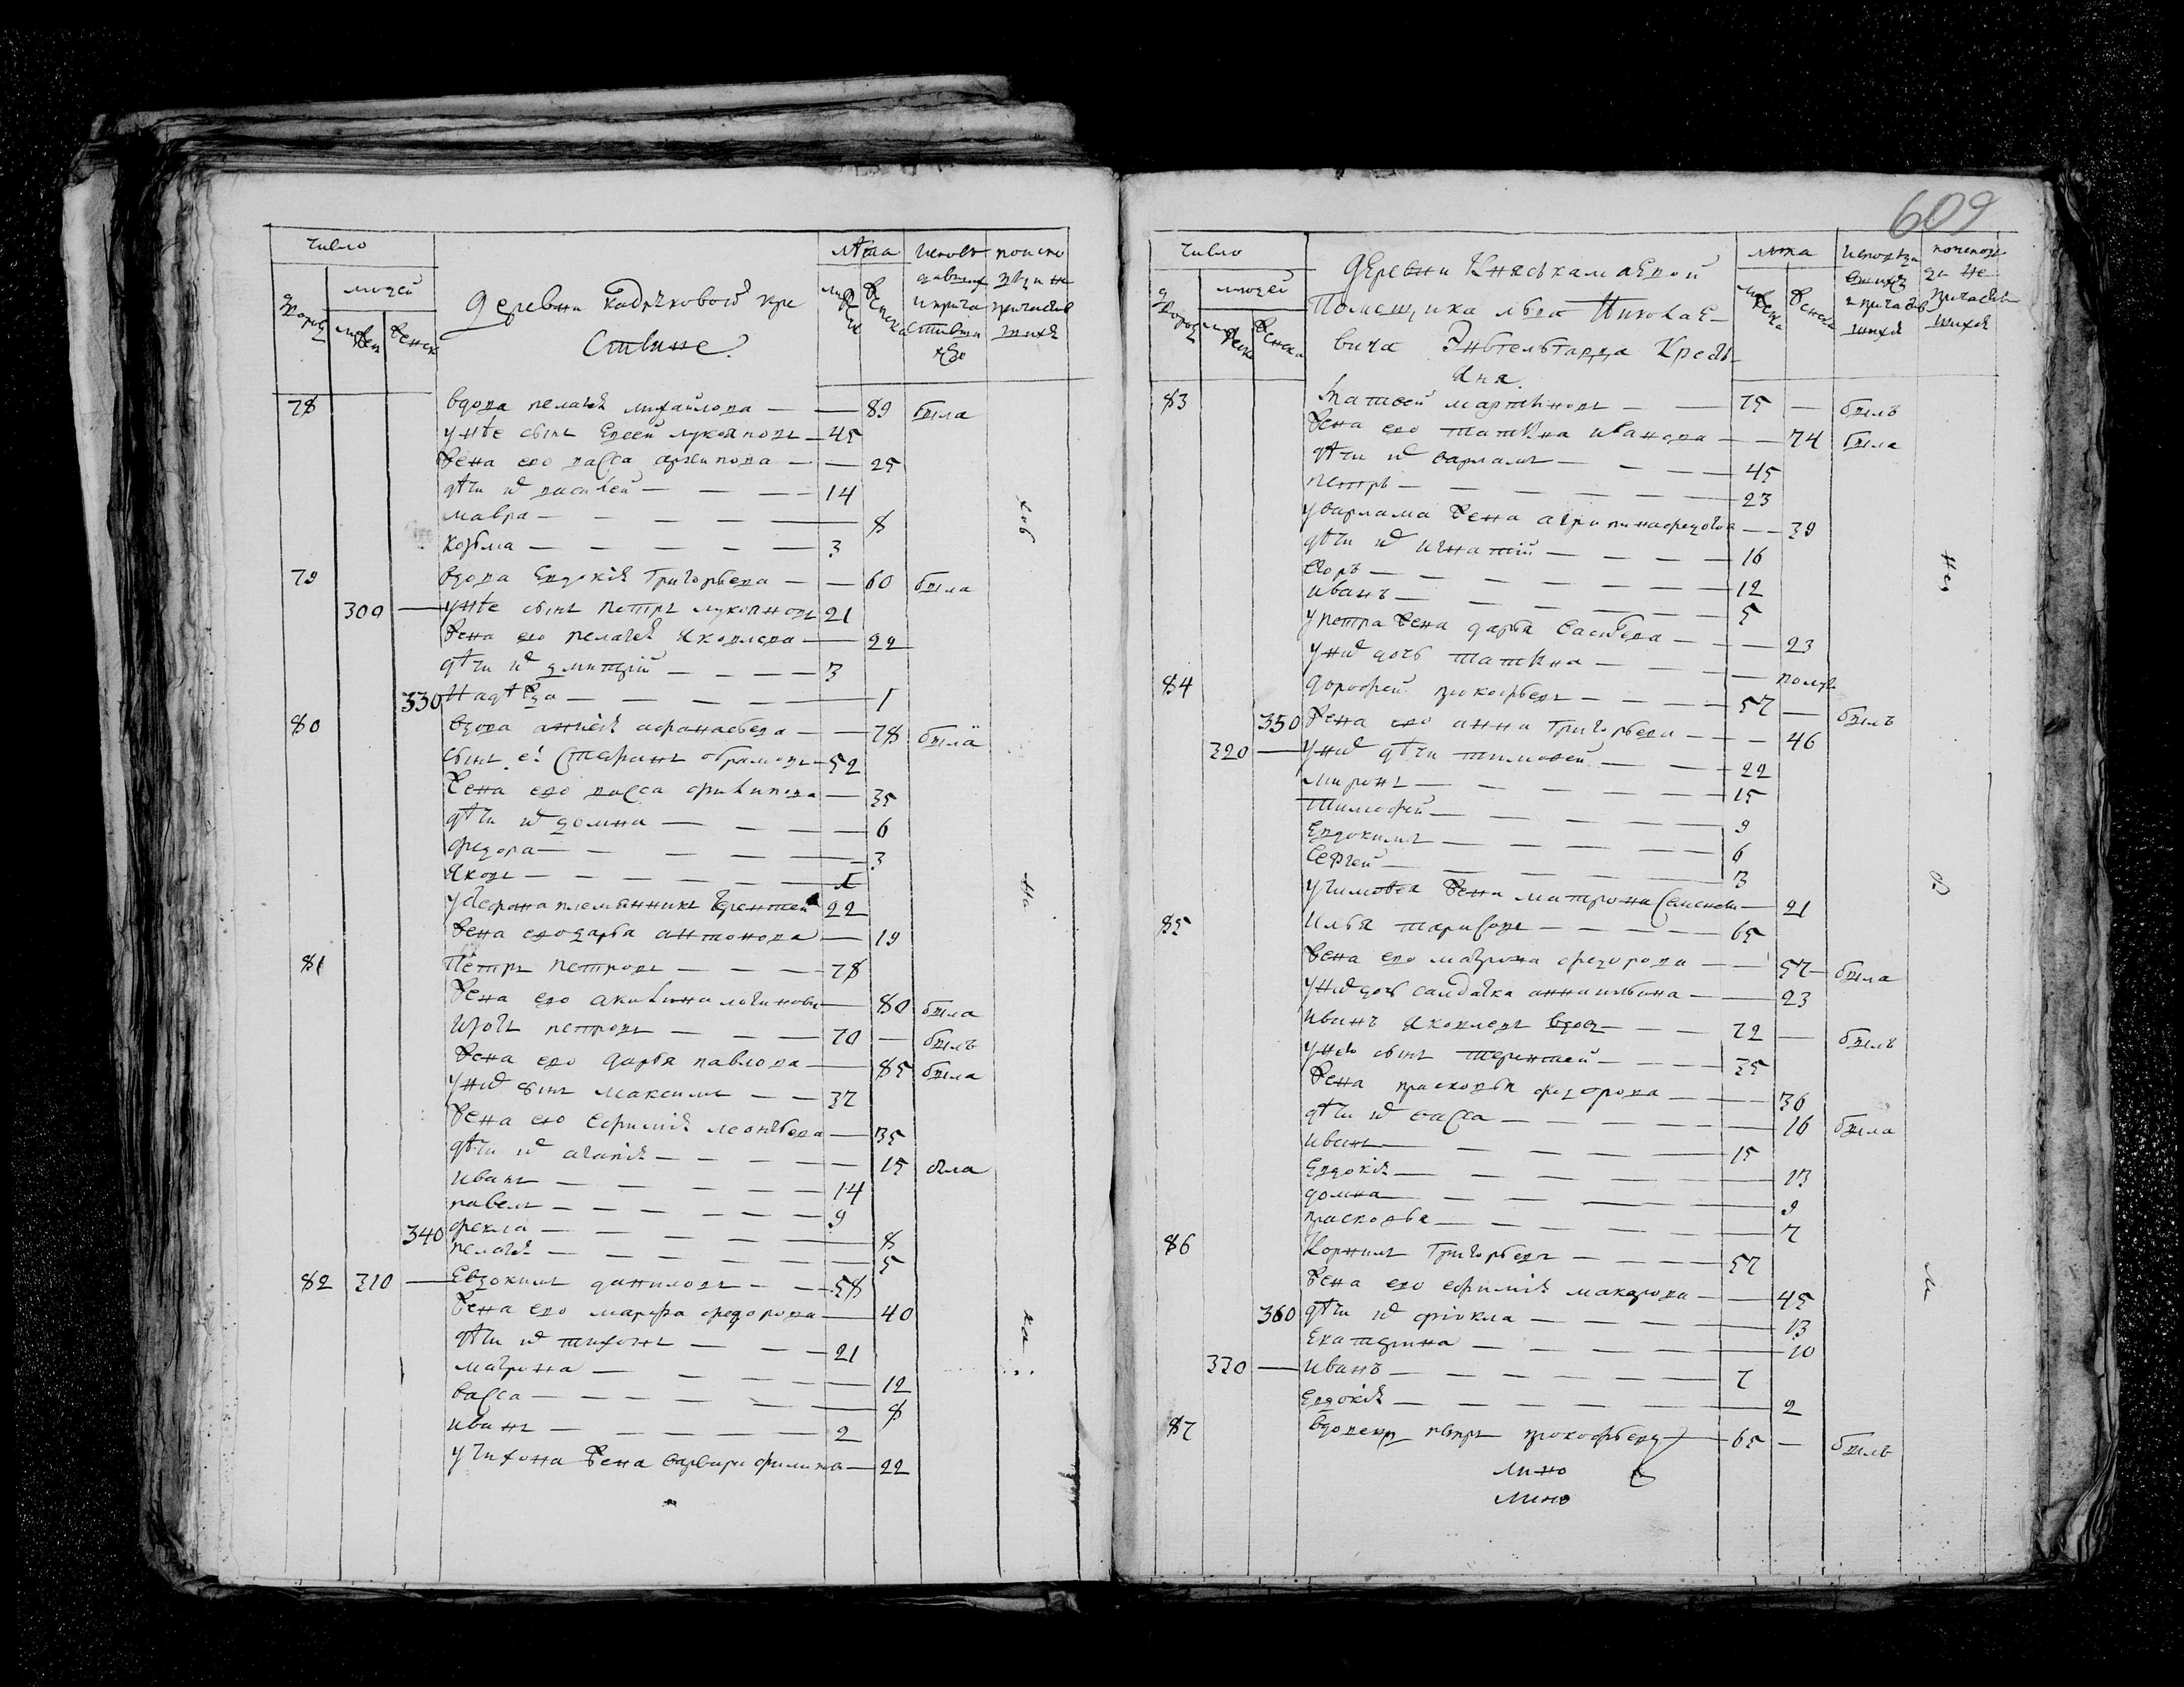 число
людей
дворов
мужеск
женск
деревни Кадучковой кре
стияне
лѣта
мужеск
женска
исповѣ
давших
и прича
стивши
хся
по испо
вѣди не
причастив
шихся
78 вдова пелагея михайлова — — 89 была
у нее сынъ Евсей лукояновъ — 45
Жена ево васса архипова — — 25
дѣти их василей — — — 14
мавра — — — — 8
Козьма — — — — 3
79 вдова Евдокия Григорьева — — 60 была
300 — у нее сынъ Петръ лукояновъ 21
Жена ево пелагея яковлева — 22
дѣти их дмитрiй — — — 3
330 Надѣжда — — — — 1
80 вдова анисия афанасьева — — 78 была
сынъ еѣ Стефанъ абрамовъ — 52
Жена ево васса филипова — 35
дѣти их домна — — — 6
федора — — — — 3
яковъ — — — — 1
у Стефана племянникъ терентей 22
Жена ево дарья антонова — 19
81 Пётръ Петровъ — — — 78
Жена ево акилина логинова — 80 была
Изотъ петровъ — — — 70 — былъ
Жена ево дарья павлова — 85 была
у них сынъ максимъ — — 37
Жена ево ефимия леонтьева — 35
дѣти их агапия — — — — 15 была
иванъ — — — — 14
павелъ — — — — 9
340 фекла — — — — 8
пелагея — — — — 5
82 310 — Евдокимъ даниловъ — — 58
Жена ево марфа федорова — 40
дѣти их тихонъ — — — 21
матрона — — — — 12
васса — — — — 8
иванъ — — — — 2
у тихона Жена варвара филипова — 22
609
число
людей
дворов
мужеск
женска
деревни Княськамаевой
Помещика льва Николае-
вича Энгельгарда Кресть-
яня
лѣта
мужеска
женска
исповѣда
вшихся
и причастив
шихся
по исповѣ
ди не
причастив
шихся
83 Матвей мартиновъ — — 75 — былъ
Жена ево татияна иванова — — 74 была
дѣти их варламъ — — — 45
петръ — — — — 23
у варлама Жена агрипина федотова — — 39
дѣти их игнатiй — — — 16
Егоръ — — — — 12
иванъ — — — — 5
у петра Жена дарья васильева — — 23
у них дочь татияна — — — полугода
84 дорофей прокофьевъ — — — 57 — былъ
350 Жена ево анна Григорьева — — 46
320 — у них дѣти тимофей — — 22
миронъ — — — — 15
Тимофей — — — — 9
Евдокимъ — — — — 6
Сергей — — — — 3
у тимофея Жена матрона Семенова — 21
85 Илья тарасовъ — — — 65
Жена ево матрона федорова — — 57 — была
у них дочь салдатка анна ильина — — 23
иванъ яковлевъ вдов — — — 72 — былъ
у нево сынъ терентей — — — 35
Жена прасковья федорова — — 36
дѣти их васса — — — — 16 была
иванъ — — — — 15
Евдокия — — — — 13
домна — — — — 9
прасковья — — — — 7
86 Корнилъ Григорьевъ — — — 57
Жена ево ефимия макарова — — 45
360 дѣти их фiокла — — — 13
Екатерина — — — 10
330 — Иванъ — — — — 7
Евдокия — — — — 2
87 вдовецъ петръ прокофьевъ — 65 — былъ